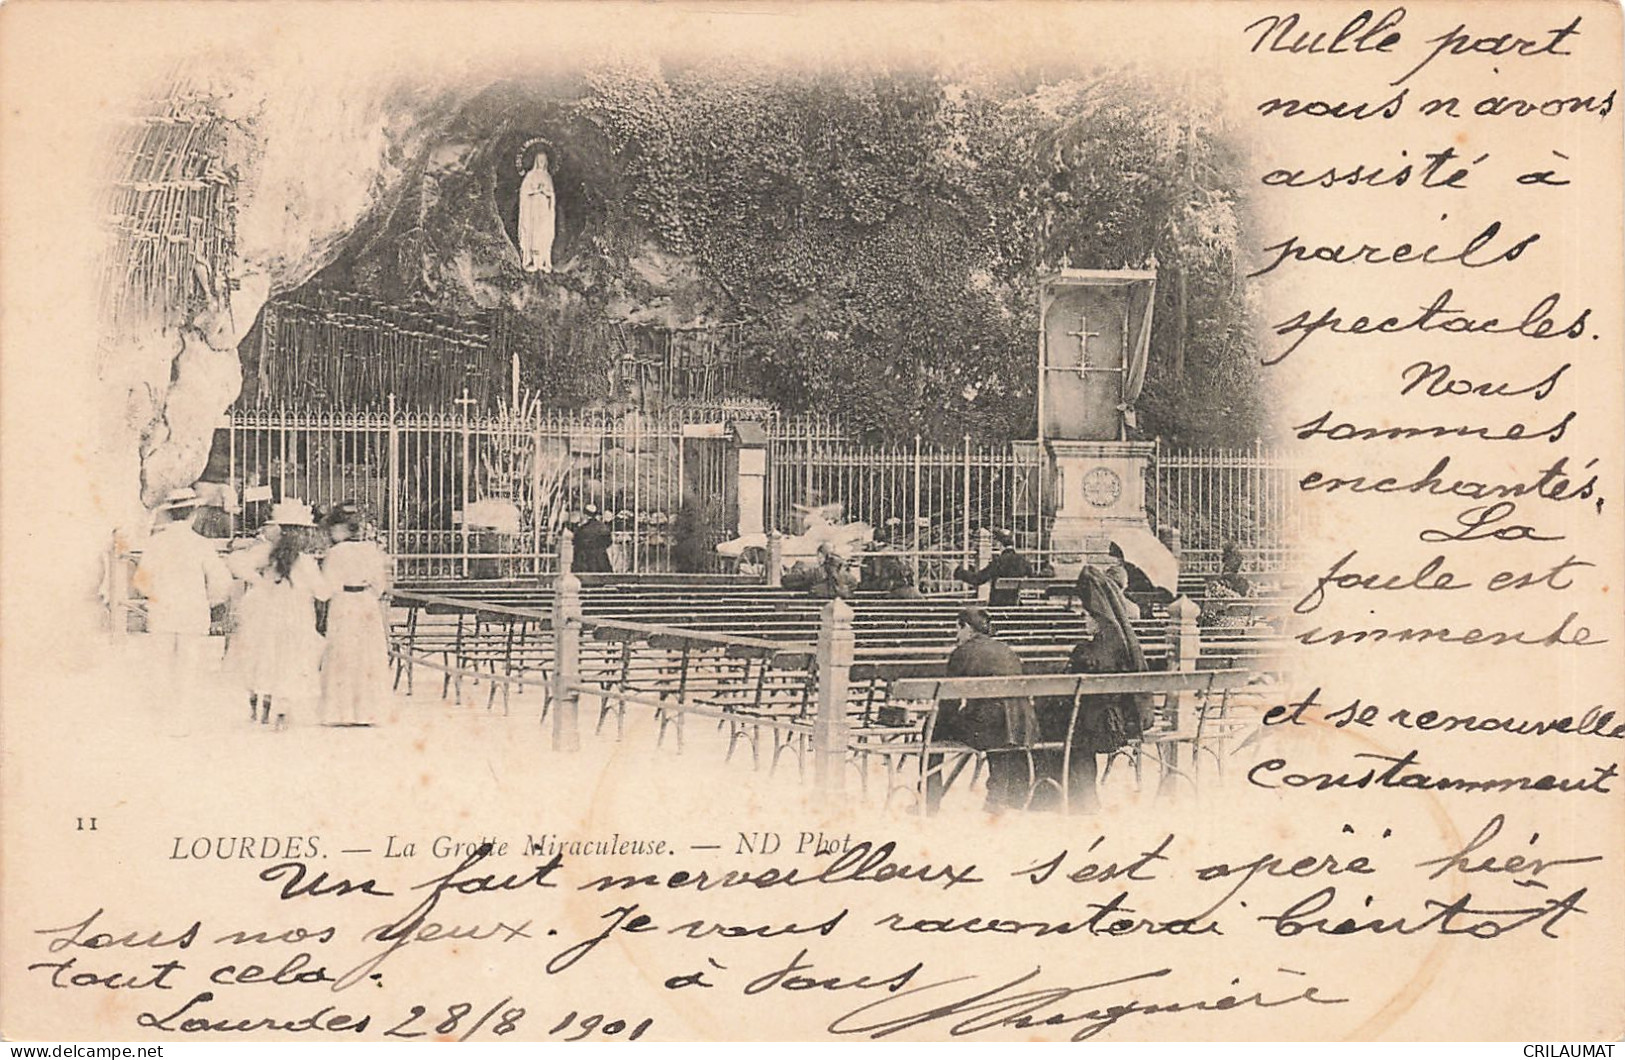 Nulle part
nous n'avons
assisté à
pareils
spectacles.
Nous
sommes
enchantés.
La
foule est
immense
et se renouvelle
constamment
11
LOURDES. — La Grotte Miraculeuse. — ND Phot
Un fait merveilleux s'est opéré hier
sous nos yeux. Je vous raconterai bientôt
tout cela. à tous
Lourdes 28/8 1901
CRILAUMAT